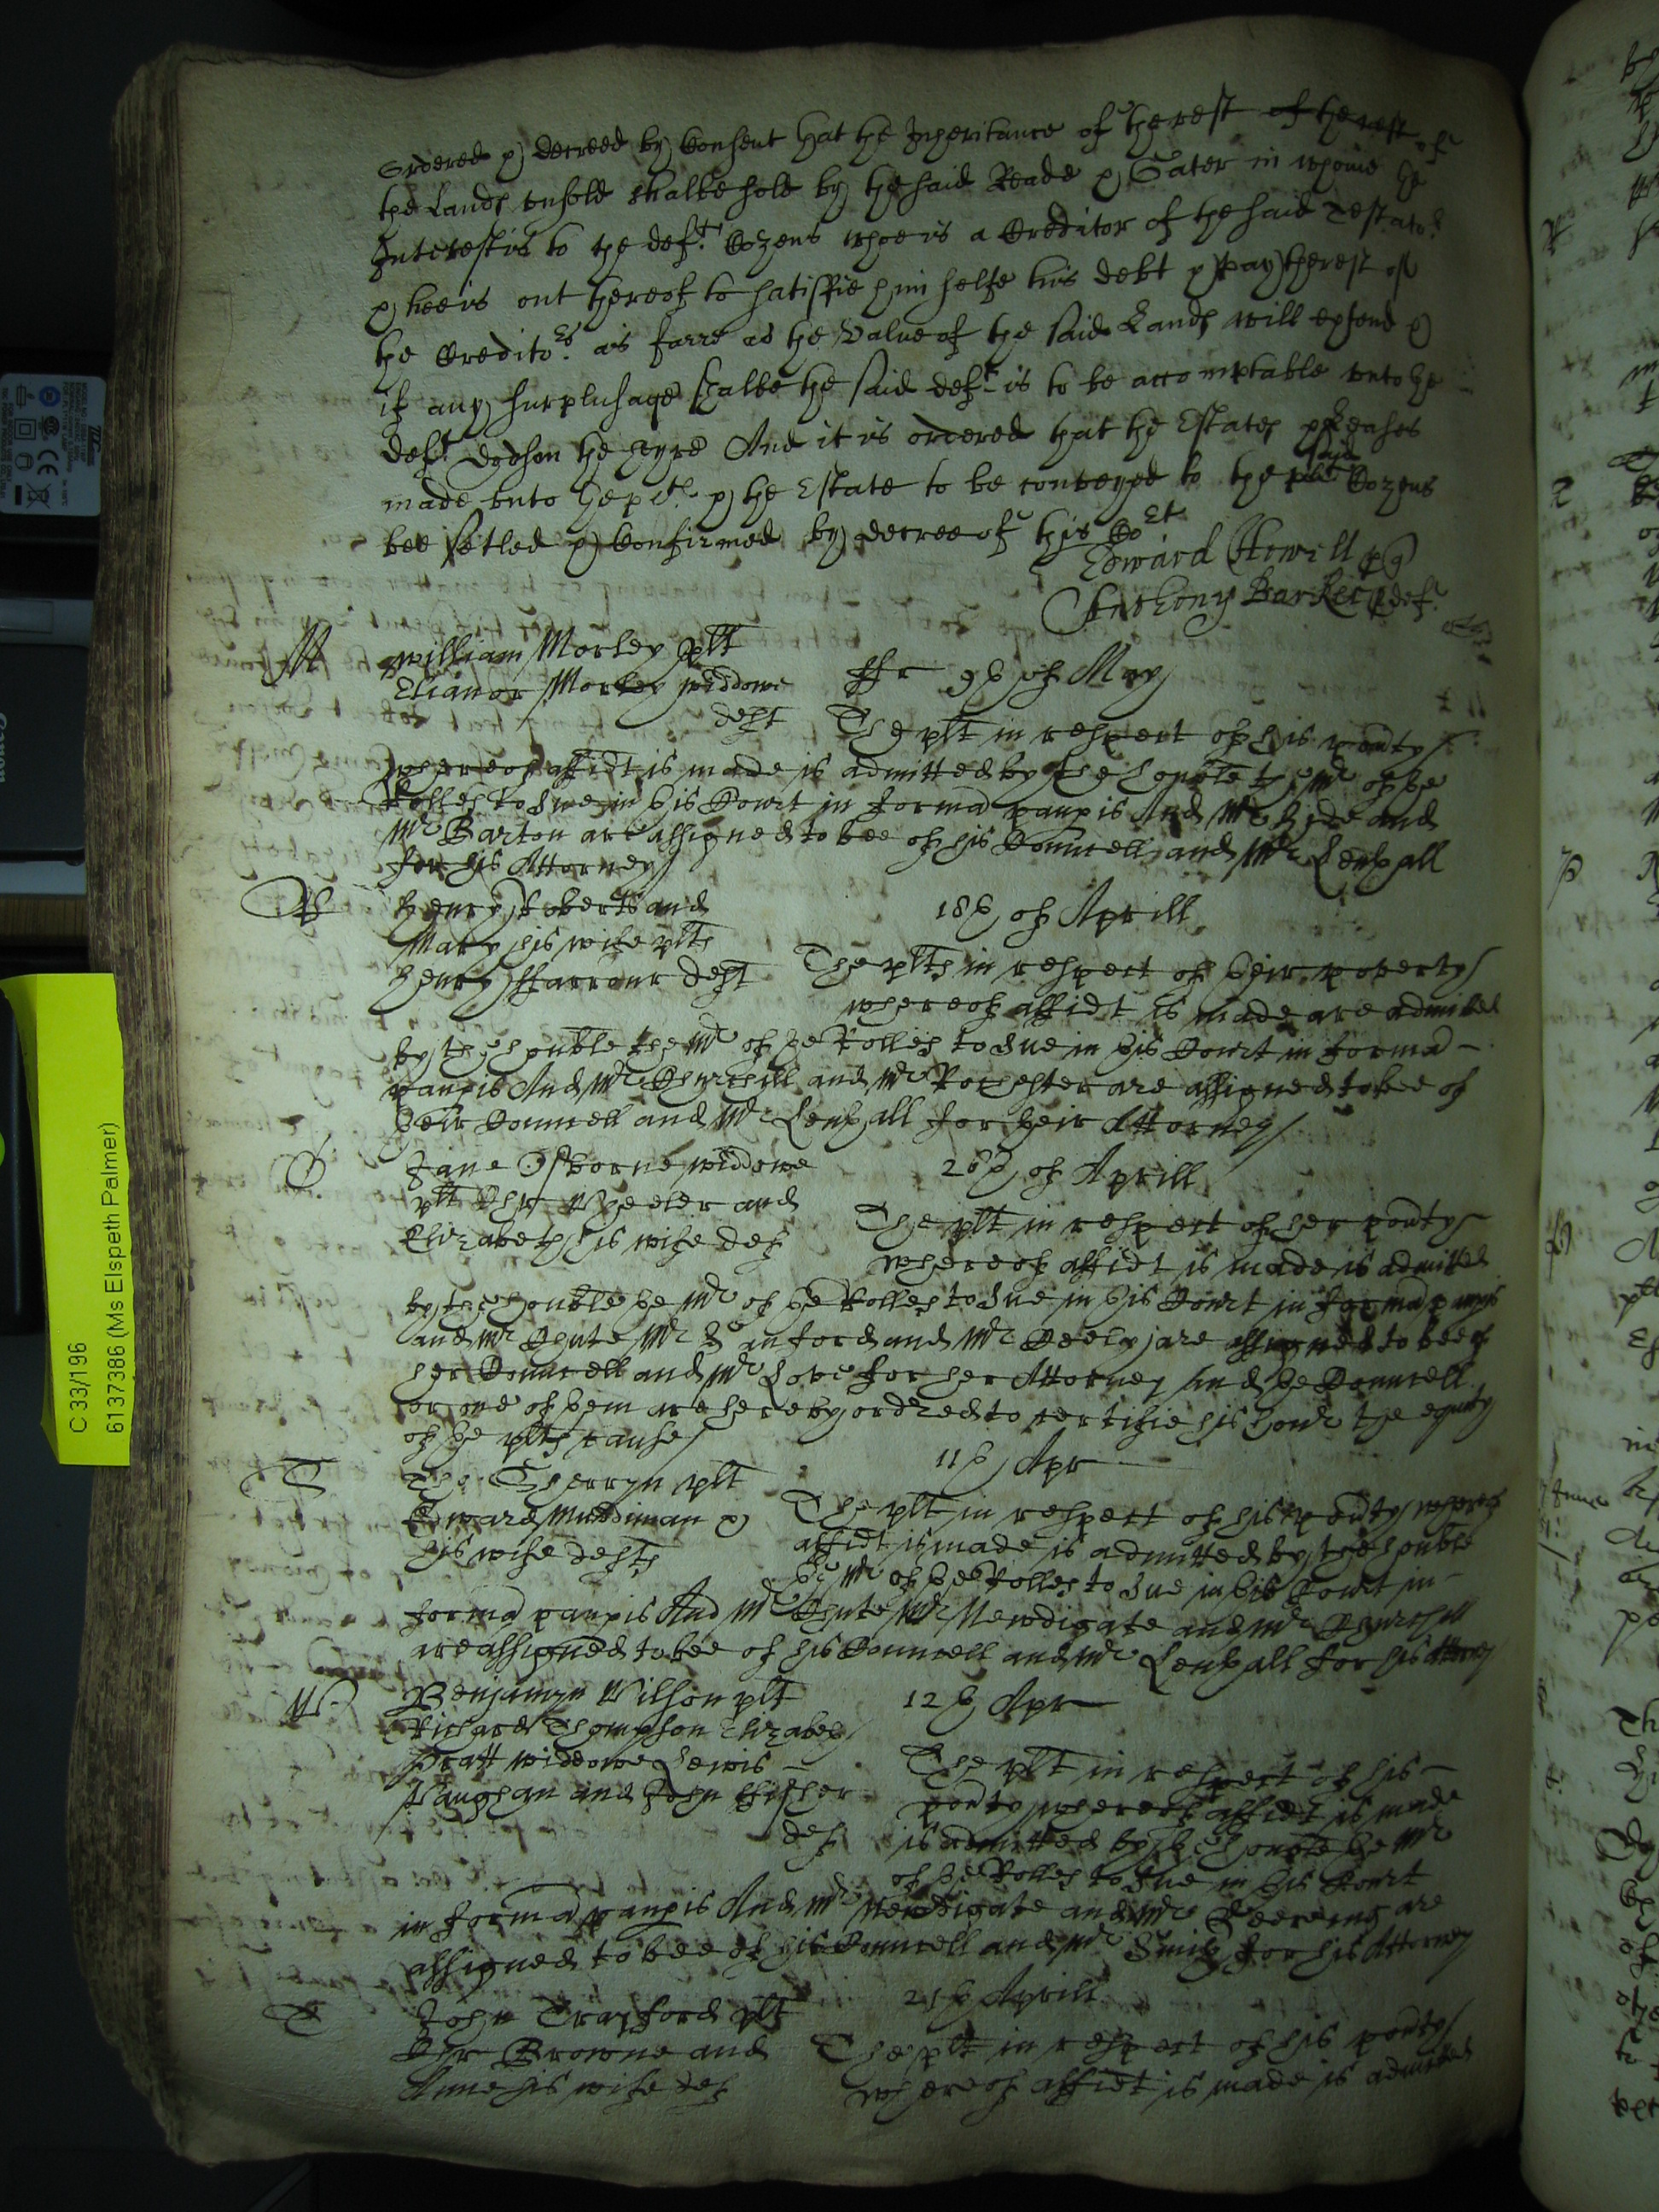 Ordered & decreed by Consent that the Inheritance of therest of therest of
the Lands unsold shalbe sold by the said Reade & Sater in whome the
Interest is to the deft Cozens whoe is a Creditor of the said Testator
& hee is out thereof to satisfie him selfe his debt & pay therest of
the Creditors as farre as the Value of the said Lands will extend &
if any surplusage shalbe the said deft is to be accomptable unto the
deft Dodson the heyre And it is ordered that the Estates & Leases
made unto the and the Estate to be conveyed to the said Cozens
bee setled & Confirmed by decree of this Cot
Edward Atwill p q
Anthony Barker p def
William Morley plt
Elianor Morley widdowe
deft
ffr 9th of May
The plt in respect of his povty
whereof affidt is made is admitted by the honble the Mr of the
Rolles to sue in this Court in forma paupis And Mr Hide and
Mr Barton are assigned to bee of his Councell and Mr Lenthall
for his Attorney
Henry Roberts and
Mary his wife plts
Henry ffarrour deft
18th of Aprill
The plts in respect of their poverty
whereof affidt is made are admitted
by the honble the Mr of the Rolles to sue in this Court in forma
paupis And Mr Churchill and Mr Rochester are assigned to bee of
their Councell and Mr Lenthall for their Attorney
O
Jane Osborne widdowe
plt Chr Wheeler and
Elizabeth his wife def
26th of Aprill
The plt in respect of her povty
whereof affidt is made is admitted
by the honble the Mr of the Rolles to sue in this Court in forma paupis
and Mr Chute Mr Sanford and Mr Keely are assigned to bee of
her Councell and Mr Love for her Attorney and the Councell
or one of them are hereby ordered to certifie his honr the equity
of the plts cause
T
Tho: Therryn plt
Edward Muddiman &
his wife defts
11th Apr
The plt in respect of his povty whereof
affidt is made is admitted by the honble
the Mr of the Rolles to sue in this Court in
forma paupis And Mr Chute Mr Newdigate and Mr Churchill
are assigned to bee of his Councell and Mr Lenthall for his Attorney
W
Benjamyn Wilson plt
Richard Thompson Elizabeth
Pratt widdowe Lewis
Vaughan and John ffisher
def
12th Apr
The plt in respect of his
povty whereof affidt is made
is admitted by the honble the Mr
of the Rolles to sue in this Court
in forma paupis And Mr Newdigate and Mr Keereing are
assigned to bee of his Councell and Mr Smith for his Attorney
T
John Trayford plt
Chr Browne and
Anne his wife def
21th Aprill
The plt in respect of his povty
whereof affidt is made is admitted
C 33/196
6137386 (Ms Elspeth Palmer)
Canon